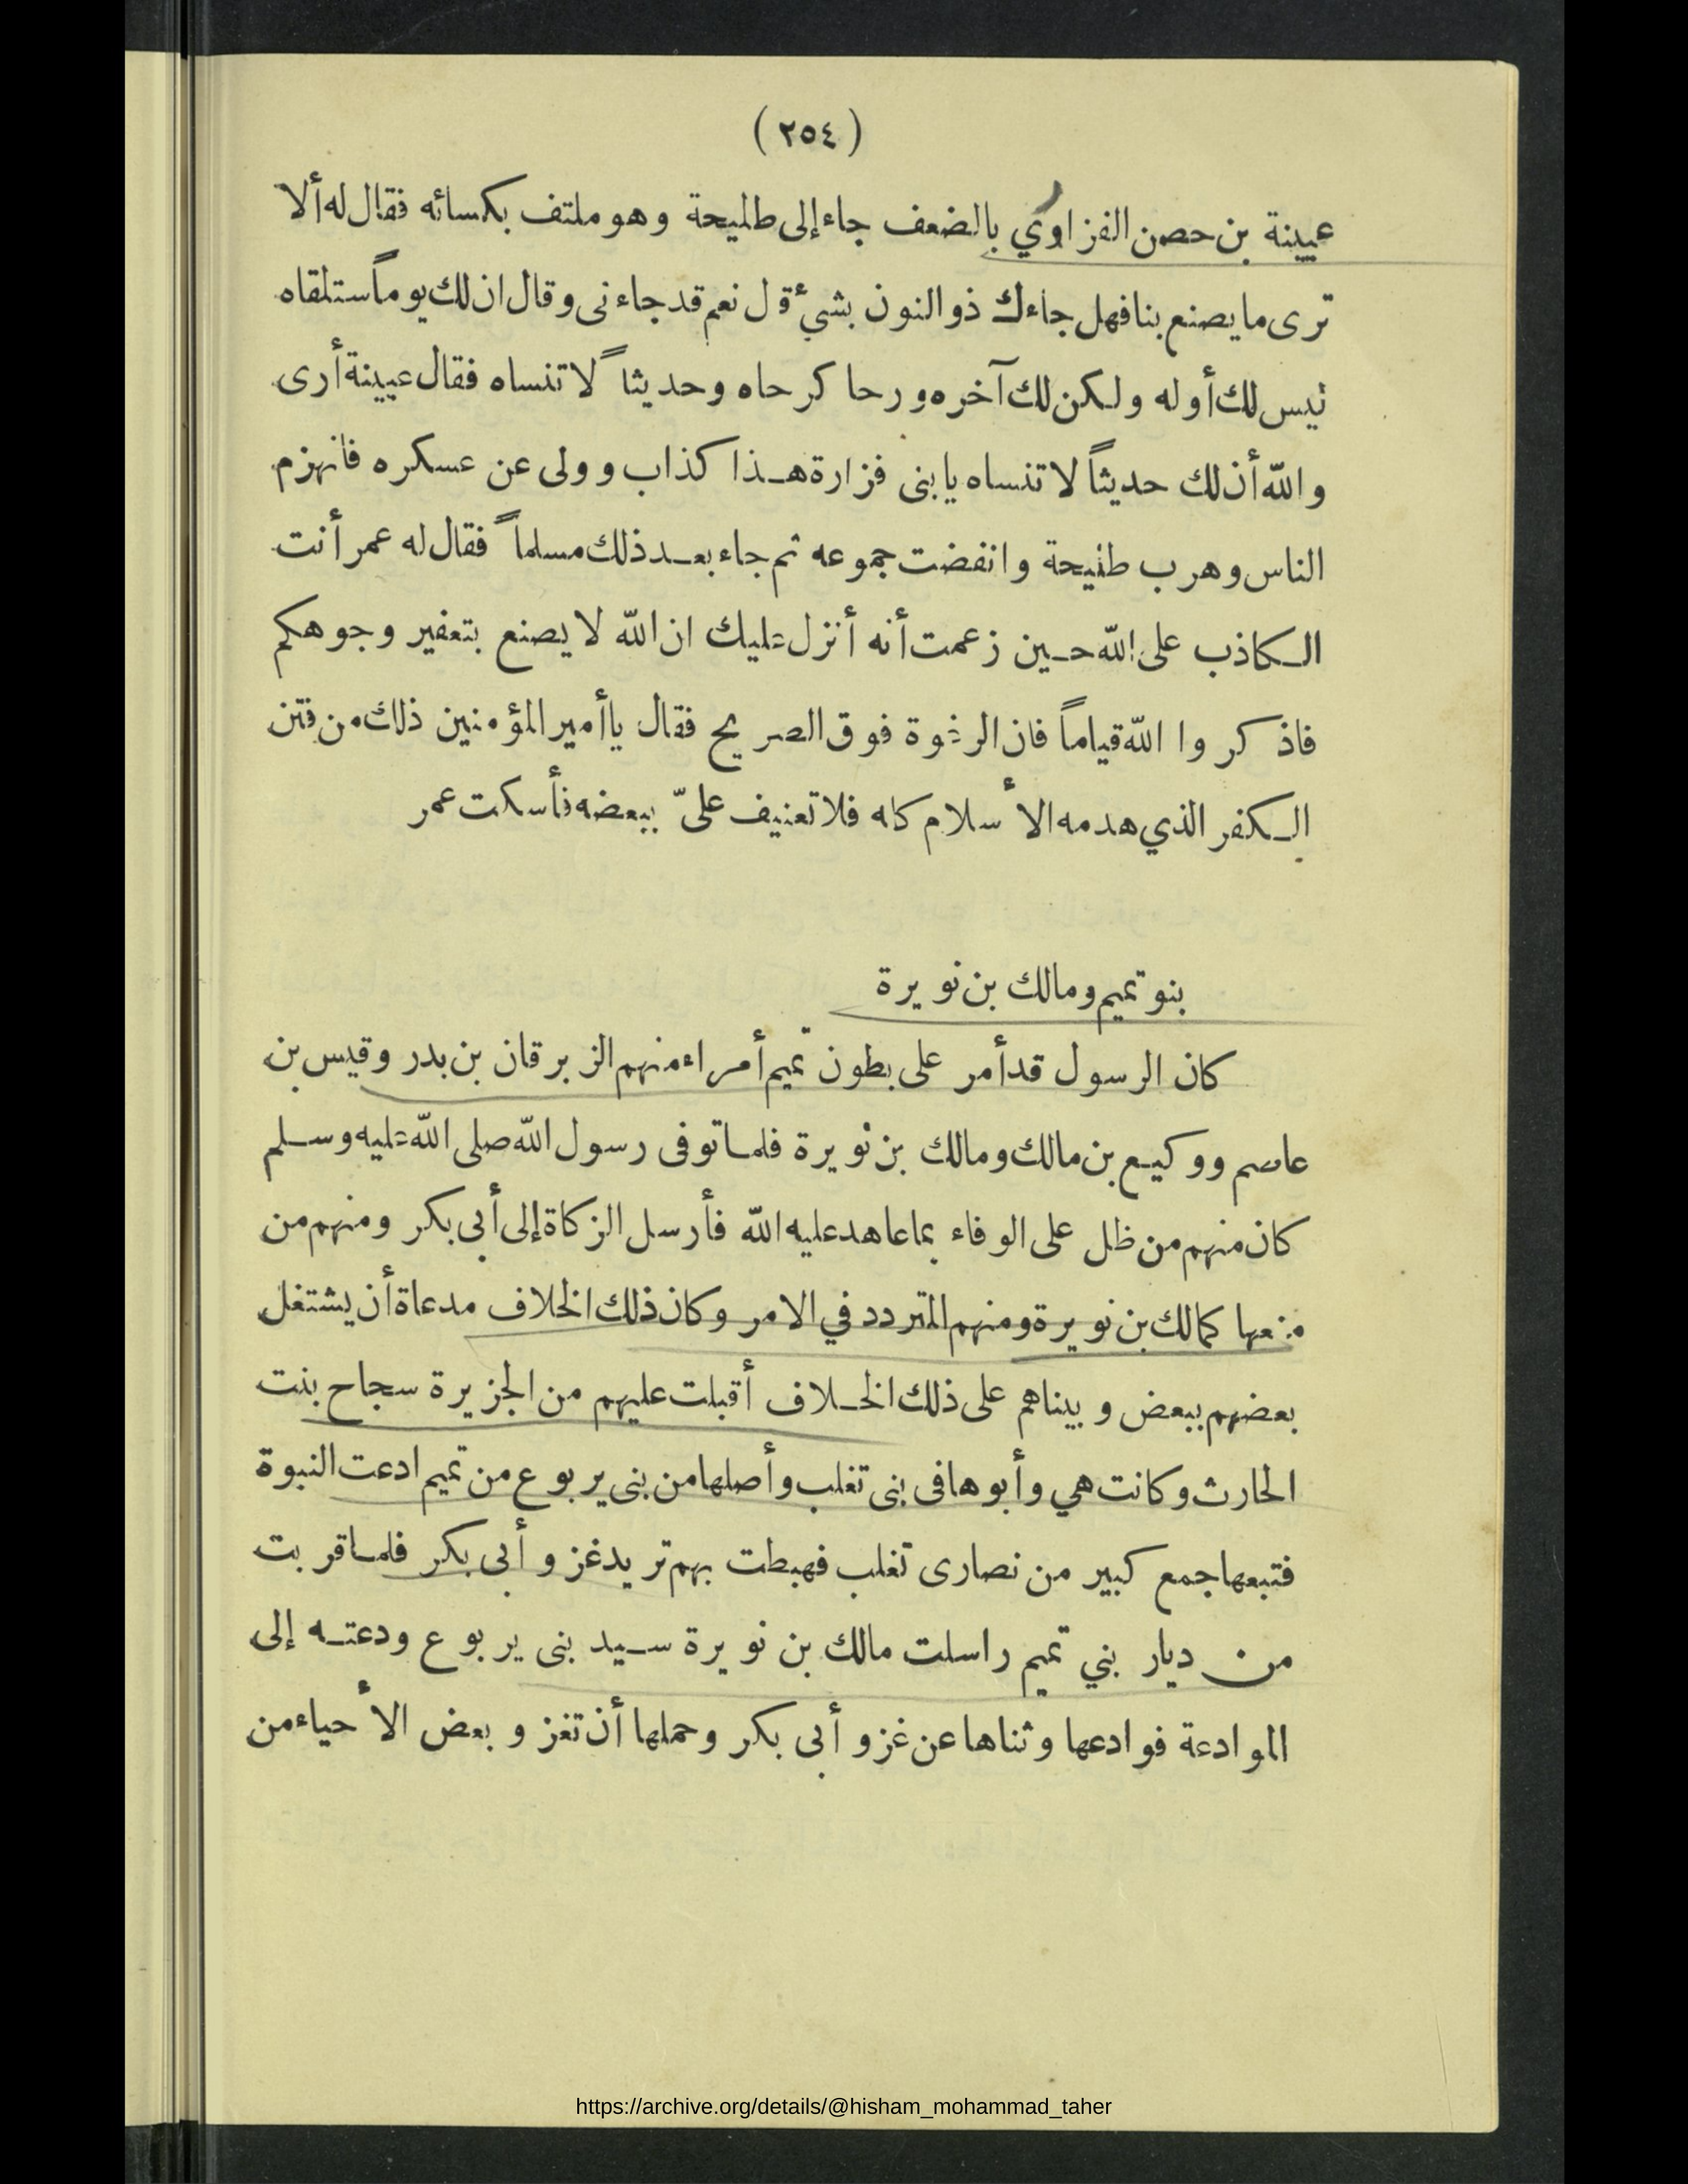 (٢٥٤)
عيينة بن حصن الفزاوي بالضعف جاء إلى طليحة وهو ملتف بكسائه فقال له ألا
ترى ما يصنع بنا فهل جاءك ذو النون بشيء قل نعم قد جاءنى وقال ان لك يوماً ستلقاه
ليس لك أوله ولكن لك آخره ورحا كرحاه وحديثاً لا تنساه فقال عيينة أرى
والله أن لك حديثاً لا تنساه يا بنى فزارة هذا كذاب وولى عن عسكره فانهزم
الناس وهرب طليحة وانفضت جموعه ثم جاء بعد ذلك مسلماً فقال له عمر أنت
الكاذب على الله حين زعمت أنه أنزل عليك ان الله لا يصنع بتعفير وجوهكم
فاذكروا الله قياماً فان الرغوة فوق الصريح فقال يا أمير المؤمنين ذلك من فتن
الكفر الذي هدمه الأسلام كله فلا تعنيف علىّ ببعضه فأسكت عمر
بنو تميم ومالك بن نويرة
كان الرسول قد أمر على بطون تميم أمراء منهم الزبرقان بن بدر وقيس بن
عاصم ووكيع بن مالك ومالك بن نويرة فلما توفى رسول الله صلى الله عليه وسلم
كان منهم من ظل على الوفاء بما عاهد عليه الله فأرسل الزكاة إلى أبى بكر ومنهم من
منعها كمالك بن نويرة ومنهم المتردد في الامر وكان ذلك الخلاف مدعاة أن يشتغل
بعضهم ببعض وبيناهم على ذلك الخلاف أقبلت عليهم من الجزيرة سجاح بنت
الحارث وكانت هي وأبوها فى بنى تغلب وأصلها من بنى يربوع من تميم ادعت النبوة
فتبعها جمع كبير من نصارى تغلب فهبطت بهم تريد غزو أبى بكر فلما قربت
من ديار بني تميم راسلت مالك بن نويرة سيد بنى يربوع ودعته إلى
الموادعة فوادعها وثناها عن غزو أبى بكر وحملها أن تغزو بعض الأحياء من
https://archive.org/details/@hisham_mohammad_taher